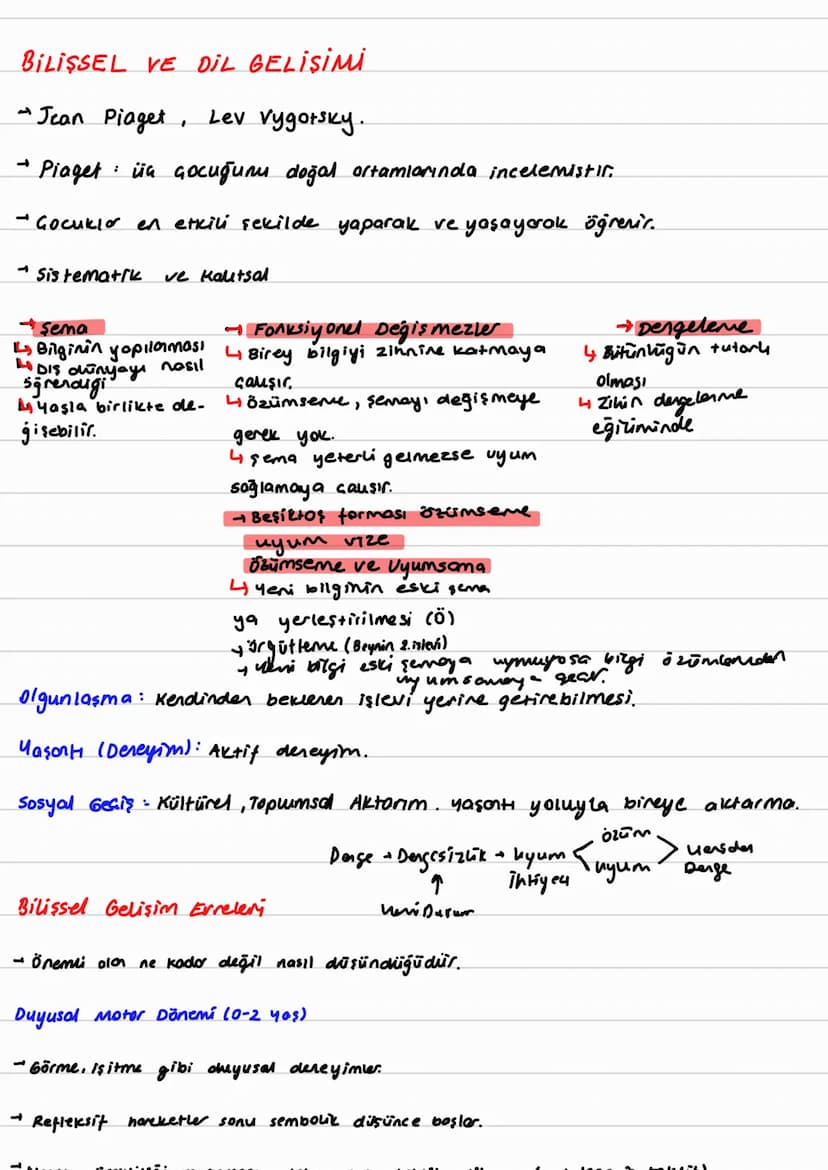 BİLİŞSEL VE DİL GELİŞİMİ
→ Jean Piaget, Lev Vygotsky.
→ Piaget : üç çocuğunu doğal ortamlarında incelemiştir.
→ Çocuklar en etkili şekilde yaparak ve yaşayarak öğrenir.
→ Sistematik ve Kalıtsal
→ Şema
↳ Bilginin yapılanması
↳ Dış dünyayı nasıl
öğrendiği
↳ Yaşla birlikte de-
ğişebilir.
→ Fonksiyonel Değişmezler
↳ Birey bilgiyi zihnine katmaya
çalışır.
↳ Özümseme, şemayı değişmeye
gerek yok.
↳ Şema yeterli gelmezse uyum
sağlamaya çalışır.
→ Beşiktaş forması özümseme
uyum vize
Özümseme ve Uyumsama
↳ Yeni bilginin eski şema
ya yerleştirilmesi (Ö)
→ Örgütleme (Beynin 2. işlevi)
→ Yeni bilgi eski şemaya uymuyosa bilgi özümlemeden
uyumsamaya geçer.
→ Dengeleme
↳ Bütünlüğün tutarlı
olması
↳ Zihin dengelenme
eğiliminde
Olgunlaşma : Kendinden beklenen işlevi yerine getirebilmesi.
Yaşantı (Deneyim) : Aktif deneyim.
Sosyal Geçiş : Kültürel, Toplumsal Aktarım. Yaşantı yoluyla bireye aktarma.
Denge → Dengesizlik → Uyum İhtiyacı < özüm uyum > Yeniden Denge
↑
Yeni Durum
Bilişsel Gelişim Evreleri
→ Önemli olan ne kadar değil nasıl düşündüğüdür.
Duyusal Motor Dönemi (0-2 yaş)
→ Görme, işitme gibi duyusal deneyimler.
→ Refleksif hareketler sonu sembolik düşünce başlar.